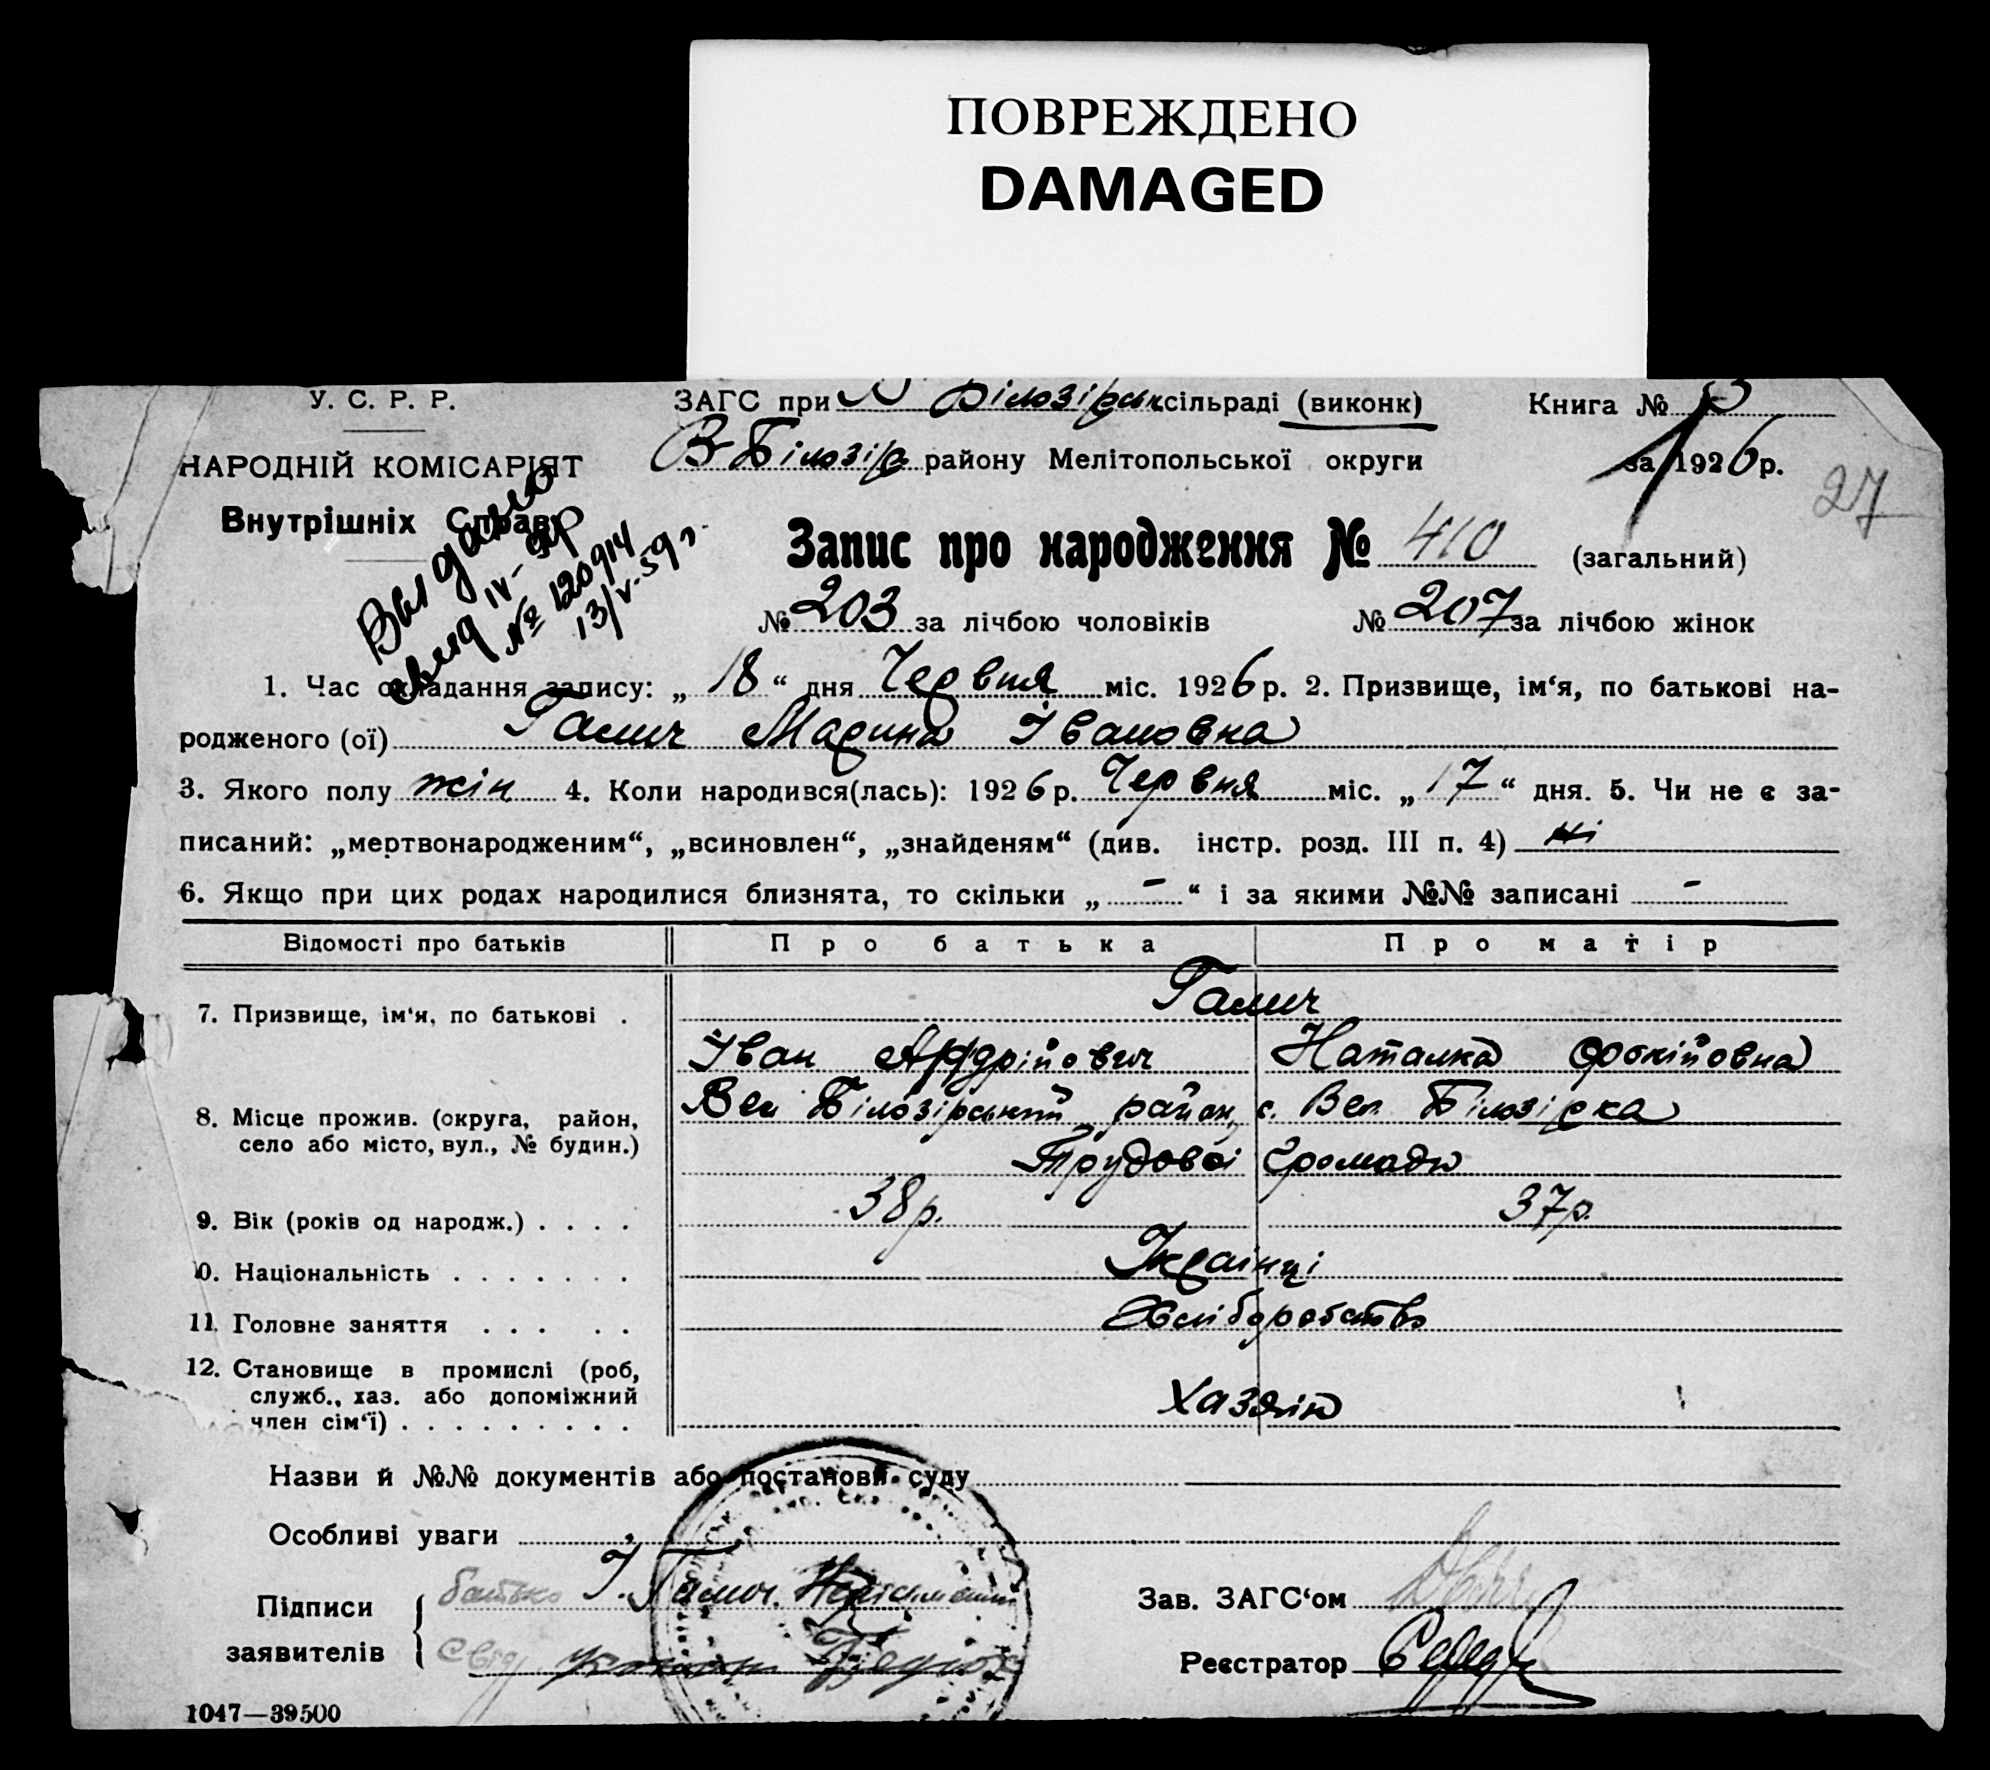 ПОВРЕЖДЕНО
DAMAGED
У. С. Р. Р.
ЗАГС при В Білозірськ сільраді (виконк)
Книга №
НАРОДНІЙ КОМІСАРІЯТ
В-Білозір району Мелітопольської округи
за 1926 р.
27
Внутрішніх Справ
Выдано
свид IV-
№ 120914
13/V-59 г.
Запис про народження № 410 (загальний)
№ 203 за лічбою чоловіків № 207 за лічбою жінок
1. Час складання запису: „ 18 “ дня Червня міс. 1926 р. 2. Призвище, ім‘я, по батькові на-
родженого (ої) Галич Марина Івановна
3. Якого полу жін 4. Коли народився(лась): 1926 р. Червня міс. „ 17 “ дня. 5. Чи не є за-
писаний: „мертвонародженим“, „всиновлен“, „знайденям“ (див. інстр. розд. III п. 4) ні
6. Якщо при цих родах народилися близнята, то скільки „ - “ і за якими №№ записані -
Відомості про батьків Про батька Про матір
7. Призвище, ім‘я, по батькові . Галич
Іван Андрійович Наталка Фокійовна
8. Місце прожив. (округа, район, Вел Білозірський район, с. Вел. Білозірка
село або місто, вул., № будин.)
Трудової громади
9. Вік (років од народж.) . . . . 38 р. 37 р.
10. Національність . . . . . . . Українці
11. Головне заняття . . . . . Хліборобство
12. Становище в промислі (роб,
служб., хаз. або допоміжний
член сім‘ї) . . . . . . . . . Хазяїн
Назви й №№ документів або постанови суду
Особливі уваги
Підписи батько І. Галич. Неписьмен
заявителів Свід
Зав. ЗАГС‘ом
Реєстратор
1047—39500